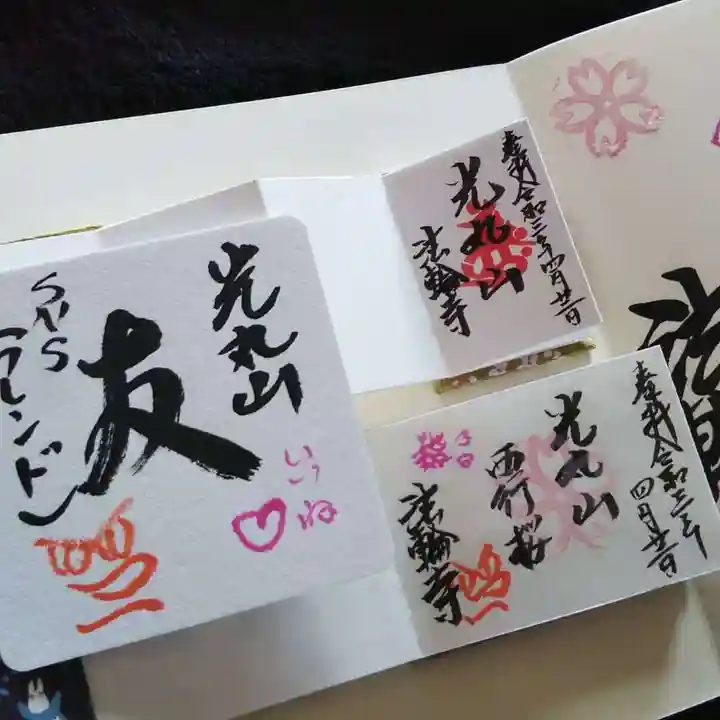 光丸山
友
SNS
フレンド
いいね
奉拝 令和三年四月廿一日
光丸山
法輪寺
奉拝 令和三年
四月廿一日
光丸山
西行桜
法輪寺